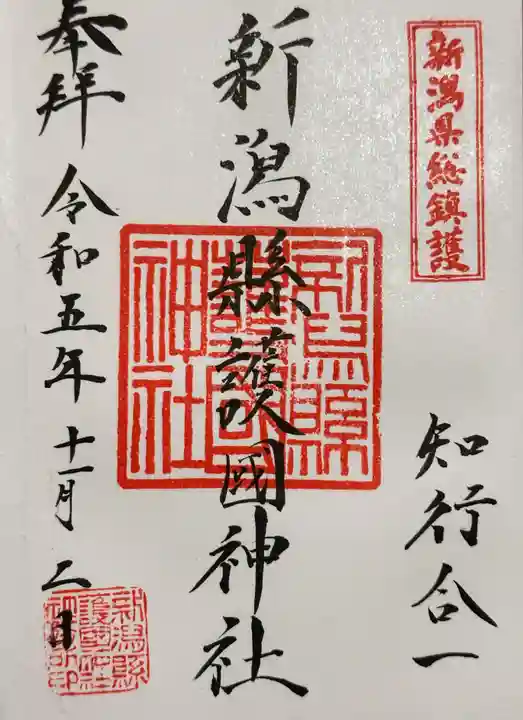 新潟県総鎮護
知行合一
新潟縣護國神社
新潟縣護國神社
奉拝
令和五年十一月二日
新潟縣護國神社